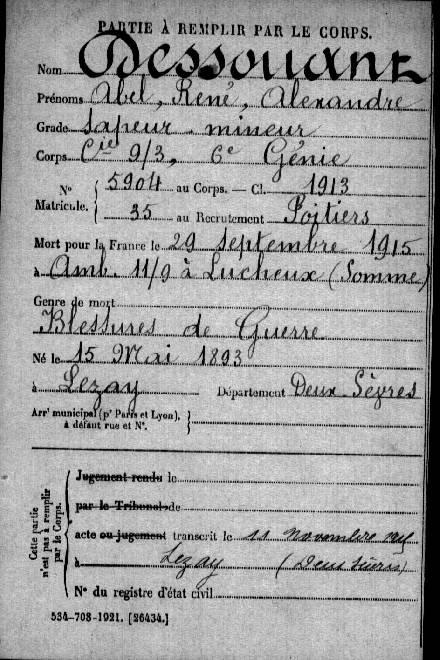 PARTIE À REMPLIR PAR LE CORPS.
Nom Dessouant
Prénoms Abel, René, Alexandre
Grade Sapeur-mineur
Corps Cie 9/3, 6e Génie
N° Matricule. 5904 au Corps. — Cl. 1913
35 au Recrutement Poitiers
Mort pour la France le 29 Septembre 1915
à Amb. 11/9 à Lucheux (Somme)
Genre de mort
Blessures de Guerre
Né le 15 Mai 1893
à Lezay Département Deux-Sèvres
Arrt municipal (pr Paris et Lyon),
à défaut rue et N°.
Cette partie n'est pas à remplir par le Corps.
Jugement rendu le
par le Tribunal de
acte ou jugement transcrit le 11 Novembre 1915
à Lezay (Deux Sèvres)
N° du registre d'état civil
534-708-1921. [26434.]